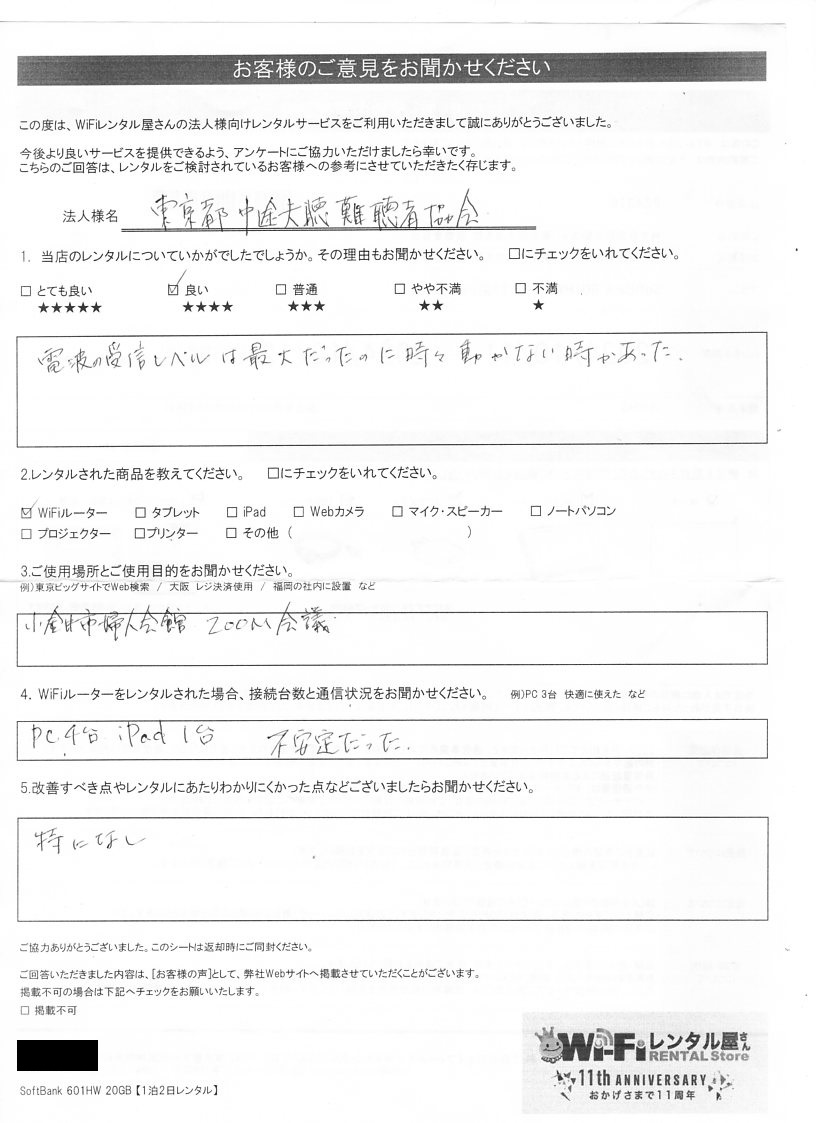 お客様のご意見をお聞かせください
この度は、WiFiレンタル屋さんの法人様向けレンタルサービスをご利用いただきまして誠にありがとうございました。
今後より良いサービスを提供できるよう、アンケートにご協力いただけましたら幸いです。
こちらのご回答は、レンタルをご検討されているお客様への参考にさせていただきたく存じます。
法人様名 東京都中途失聴難聴者協会
1. 当店のレンタルについていかがでしたでしょうか。その理由もお聞かせください。 □にチェックをいれてください。
□ とても良い ☑ 良い □ 普通 □ やや不満 □ 不満
★★★★★ ★★★★ ★★★ ★★ ★
電波の受信レベルは最大だったのに時々動かない時があった.
2.レンタルされた商品を教えてください。 □にチェックをいれてください。
☑ WiFiルーター □ タブレット □ iPad □ Webカメラ □ マイク・スピーカー □ ノートパソコン
□ プロジェクター □プリンター □ その他 ( )
3.ご使用場所とご使用目的をお聞かせください。
例)東京ビッグサイトでWeb検索 / 大阪 レジ決済使用 / 福岡の社内に設置 など
小金井市婦人会館 ZOOM会議
4. WiFiルーターをレンタルされた場合、接続台数と通信状況をお聞かせください。 例)PC 3台 快適に使えた など
PC 4台 iPad 1台 不安定だった.
5.改善すべき点やレンタルにあたりわかりにくかった点などございましたらお聞かせください。
特になし
ご協力ありがとうございました。このシートは返却時にご同封ください。
ご回答いただきました内容は、[お客様の声]として、弊社Webサイトへ掲載させていただくことがございます。
掲載不可の場合は下記へチェックをお願いいたします。
□ 掲載不可
Wi-Fiレンタル屋さん
RENTAL Store
11th ANNIVERSARY
おかげさまで11周年
SoftBank 601HW 20GB【1泊2日レンタル】